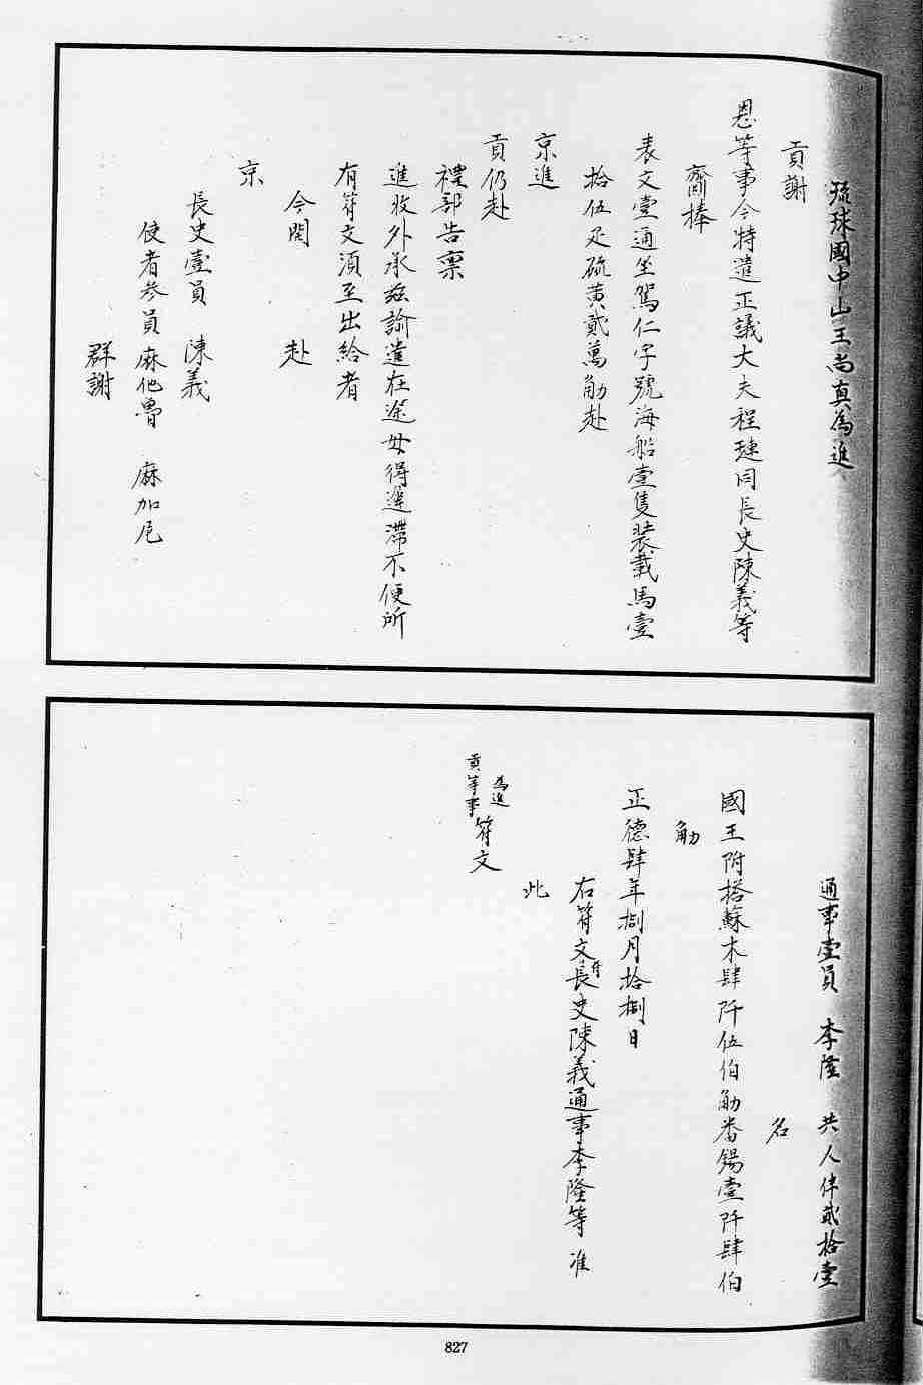 琉球國中山王尚真為進
貢謝
恩等事今特遣正議大夫程璉同長史陳義等
齎捧
表文壹通坐駕仁字號海船壹隻装載馬壹
拾伍疋硫黄貳萬觔赴
京進
貢仍赴
禮部告稟
進收外承玆諭遣在途毋得遲滯不便所
有符文須至出給者
今開 赴
京
長史壹員 陳義
使者叁員 麻他魯 麻加尼
群謝
通事壹員 李隆 共人伴貳拾壹
名
國王附搭蘇木肆阡伍伯觔番錫壹阡肆伯
觔
正德肆年捌月拾捌日
右符文付長史陳義通事李隆等 准
此
為進
貢等事符文
827